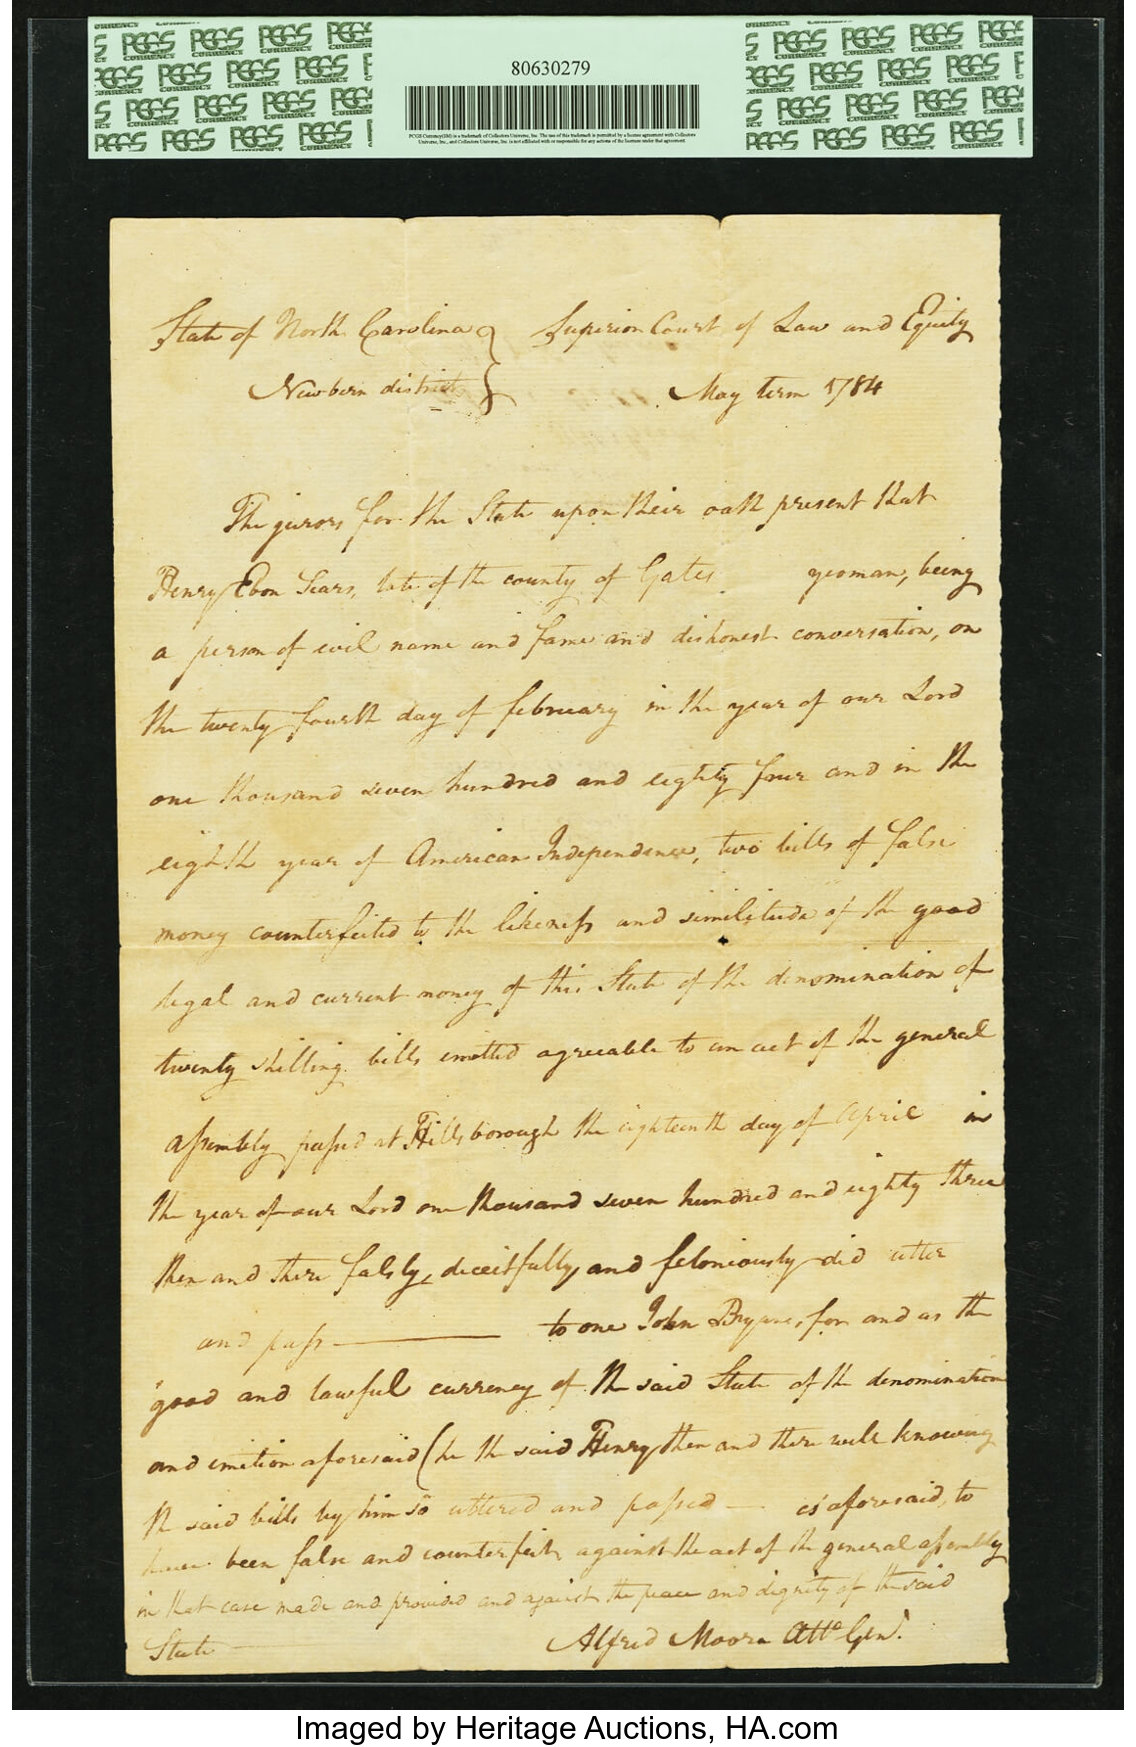 PCGS CURRENCY
80630279
PCGS Currency(SM) is a trademark of Collectors Universe, Inc. The use of this trademark is permitted by a license agreement with Collectors
Universe, Inc., and Collectors Universe, Inc. is not affiliated with or responsible for any actions of the licensee under that agreement.
State of North Carolina } Superior Court of Law and Equity
Newbern district } May term 1784
The jurors for the State upon their oath present that
Henry Ebon Sears, late of the county of Gates yeoman, being
a person of evil name and fame and dishonest conversation, on
the twenty fourth day of february in the year of our Lord
one thousand seven hundred and eighty four and in the
eighth year of American Independence, two bills of false
money counterfeited to the likeness and similitude of the good
legal and current money of this State of the denomination of
twenty shilling bills emitted agreeable to an act of the general
assembly passed at Hillsborough the eighteenth day of April in
the year of our Lord one thousand seven hundred and eighty three
then and there falsly, deceitfully, and feloniously did utter
and pass — to one John Bryan, for and as the
good and lawful currency of the said State of the denomination
and emition aforesaid (he the said Henry then and there well knowing
the said bills by him so uttered and passed — as aforesaid, to
have been false and counterfeit, against the act of the general assembly
in that case made and provided and against the peace and dignity of the said
State — Alfred Moore Atto Genl.
Imaged by Heritage Auctions, HA.com